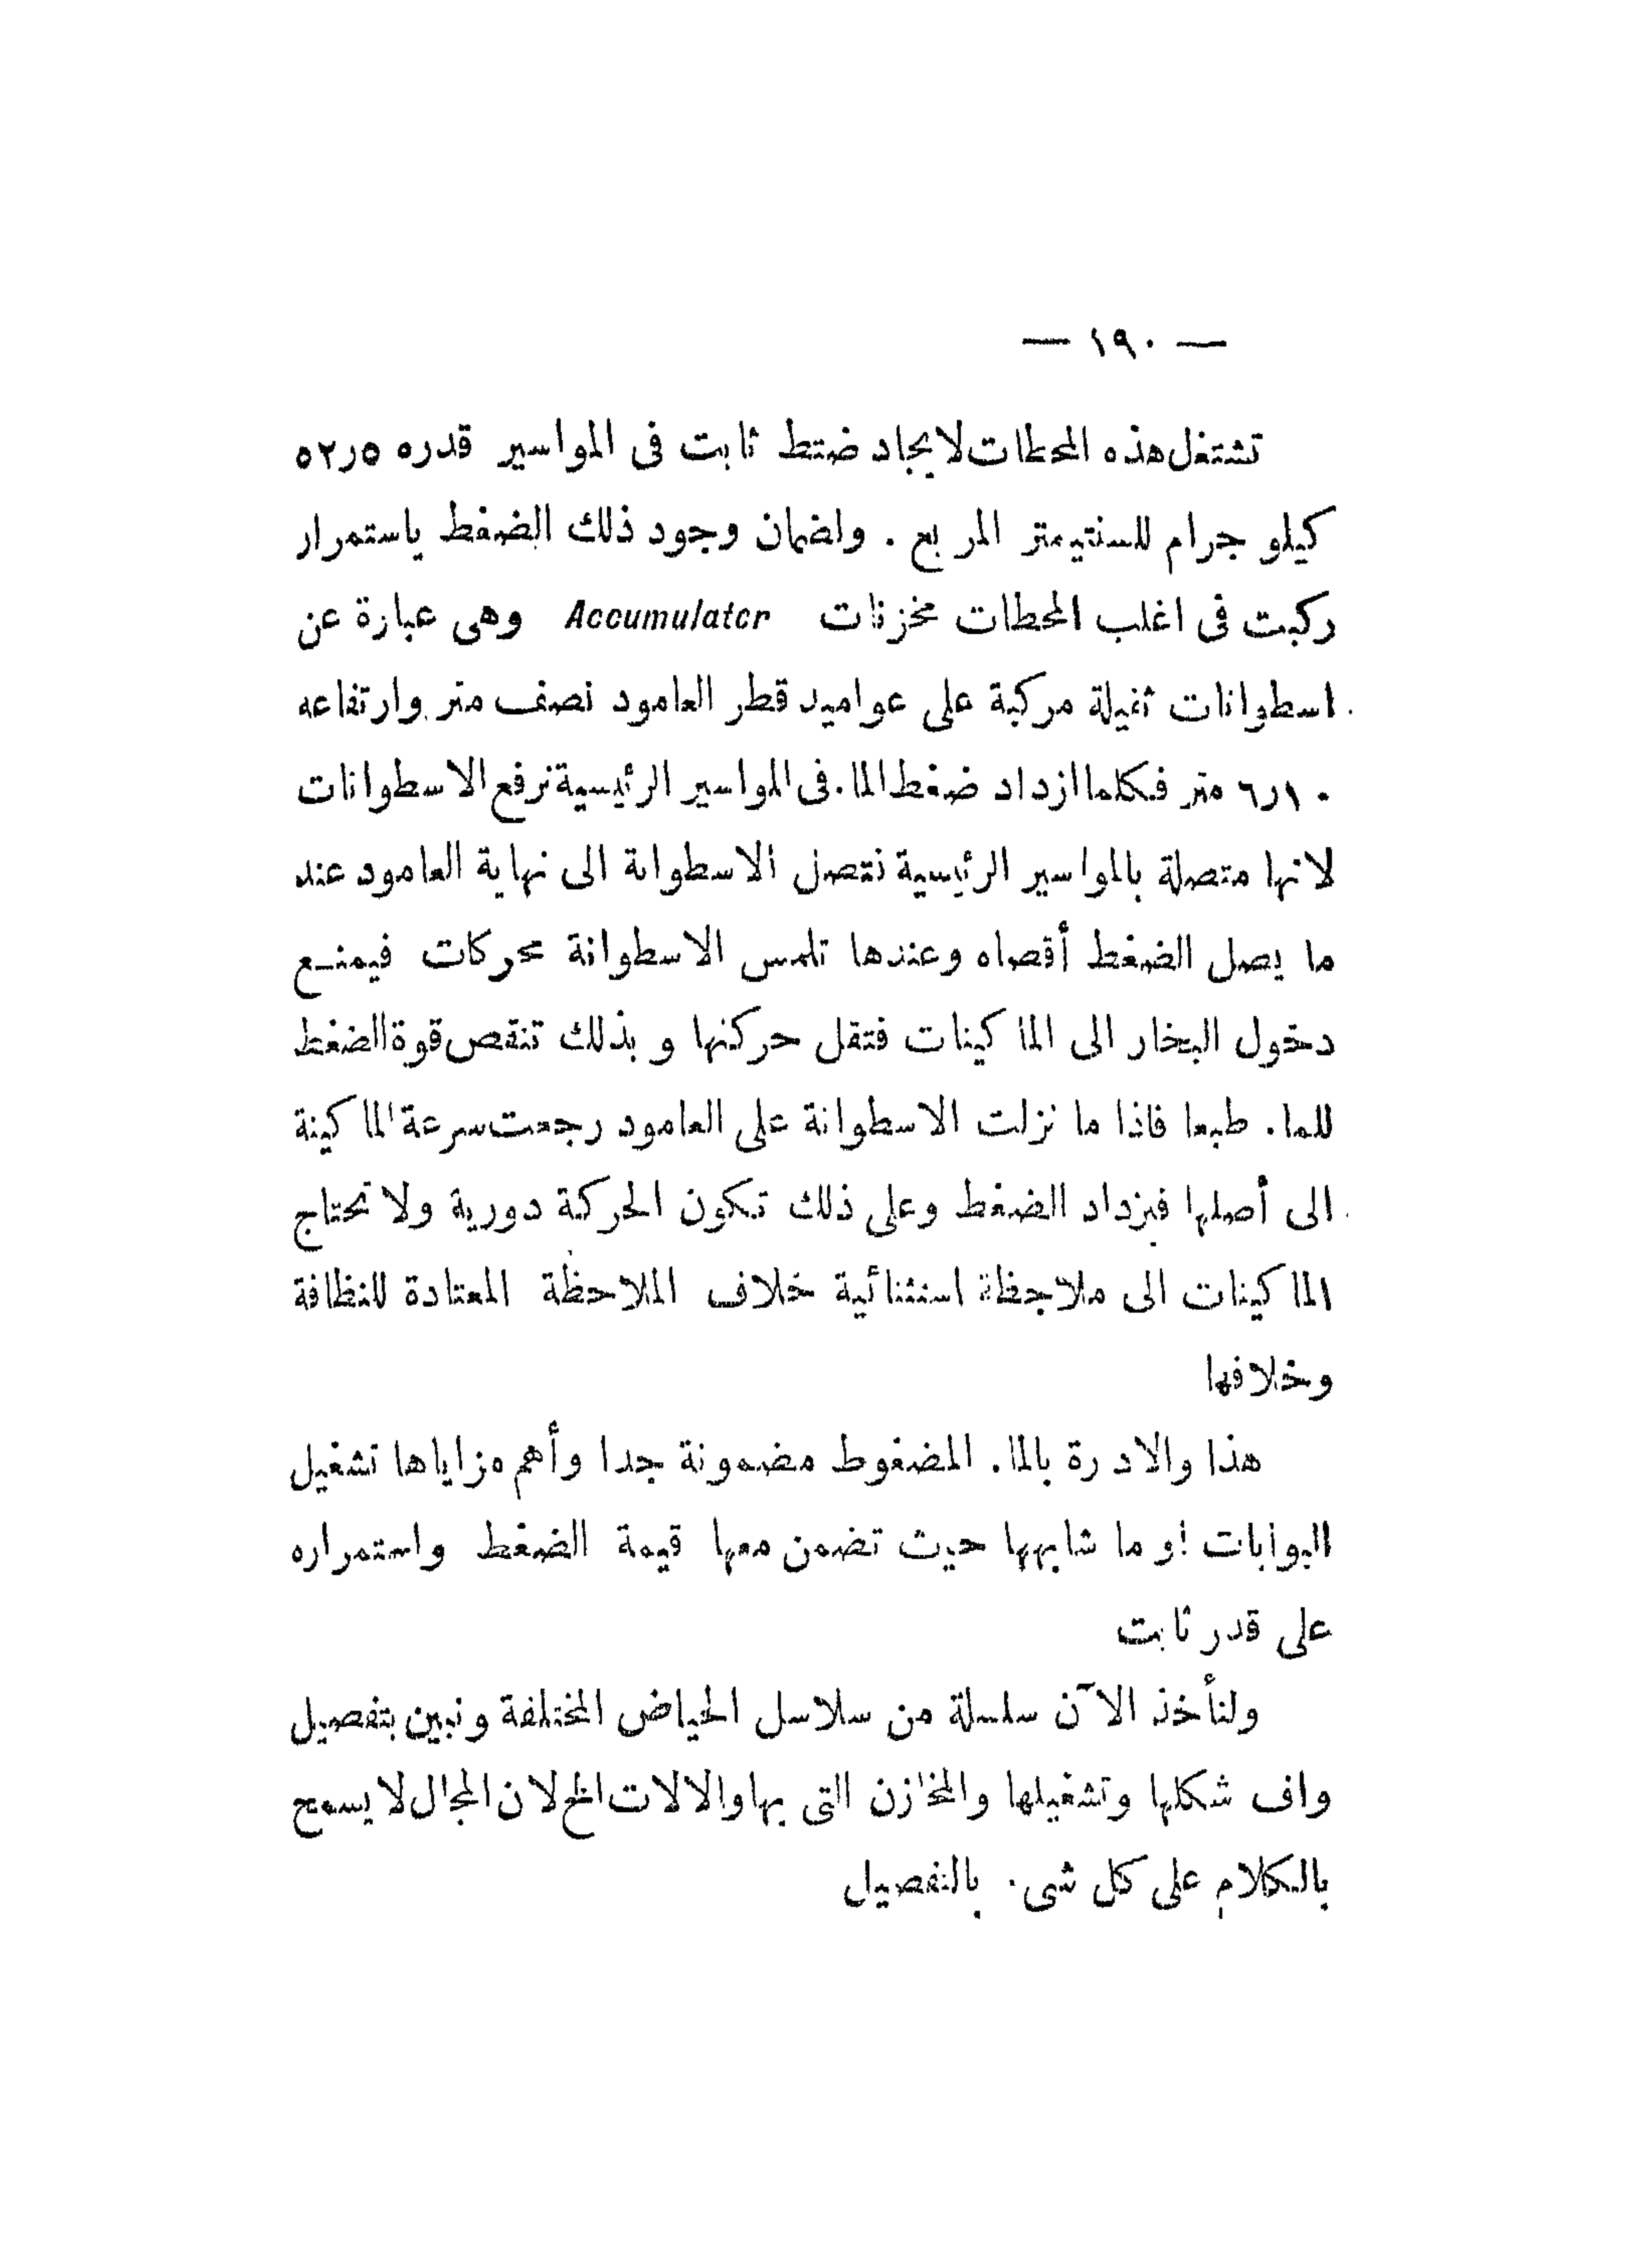 — ١٩٠ —
تشتغل هذه المحطات لايجاد ضغط ثابت فى المواسير قدره ٥ر٥٢
كيلو جرام للسنتيمتر المربع . ولضمان وجود ذلك الضغط باستمرار
ركبت فى اغلب المحطات مخزنات Accumulator وهى عبارة عن
اسطوانات ثقيلة مركبة على عواميد قطر العامود نصف متر وارتفاعه
٦ر١٠ متر فكلما ازداد ضغط الماء فى المواسير الرئيسية ترفع الاسطوانات
لانها متصلة بالمواسير الرئيسية فتصل الاسطوانة الى نهاية العامود عند
ما يصل الضغط أقصاه وعندها تلمس الاسطوانة محركات فيمنع
دخول البخار الى الماكينات فتقل حركتها وبذلك تنقص قوة الضغط
للماء طبعا فاذا ما نزلت الاسطوانة على العامود رجعت سرعة الماكينة
الى أصلها فيزداد الضغط وعلى ذلك تكون الحركة دورية ولا تحتاج
الماكينات الى ملاحظة استثنائية خلاف الملاحظة المعتادة للنظافة
وخلافها
هذا والادرة بالماء المضغوط مضمونة جدا وأهم مزاياها تشغيل
البوابات او ما شابهها حيث تضمن معها قيمة الضغط واستمراره
على قدر ثابت
ولنأخذ الآن سلسلة من سلاسل الحياض المختلفة ونبين بتفصيل
واف شكلها وتشغيلها والمخازن التى بها والالات الخ لان المجال لا يسمح
بالكلام على كل شىء بالتفصيل